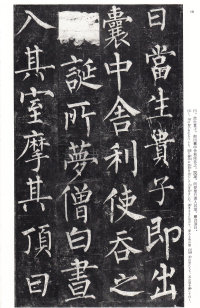 日當生貴子即出
囊中舍利使吞之
誕所夢僧白晝
入其室摩其頂曰